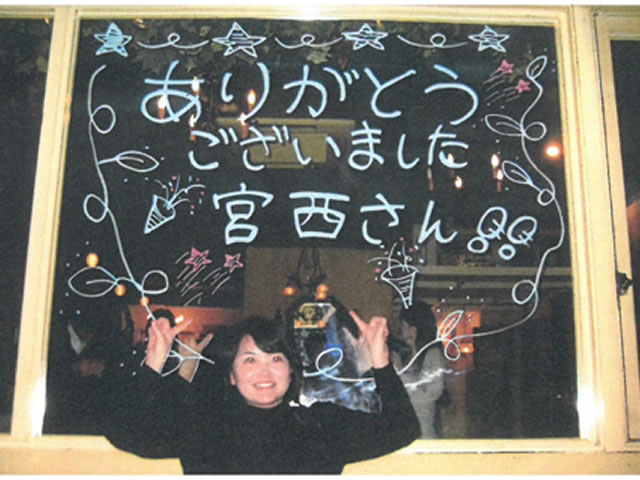 ありがとう
ございました
宮西さん!!